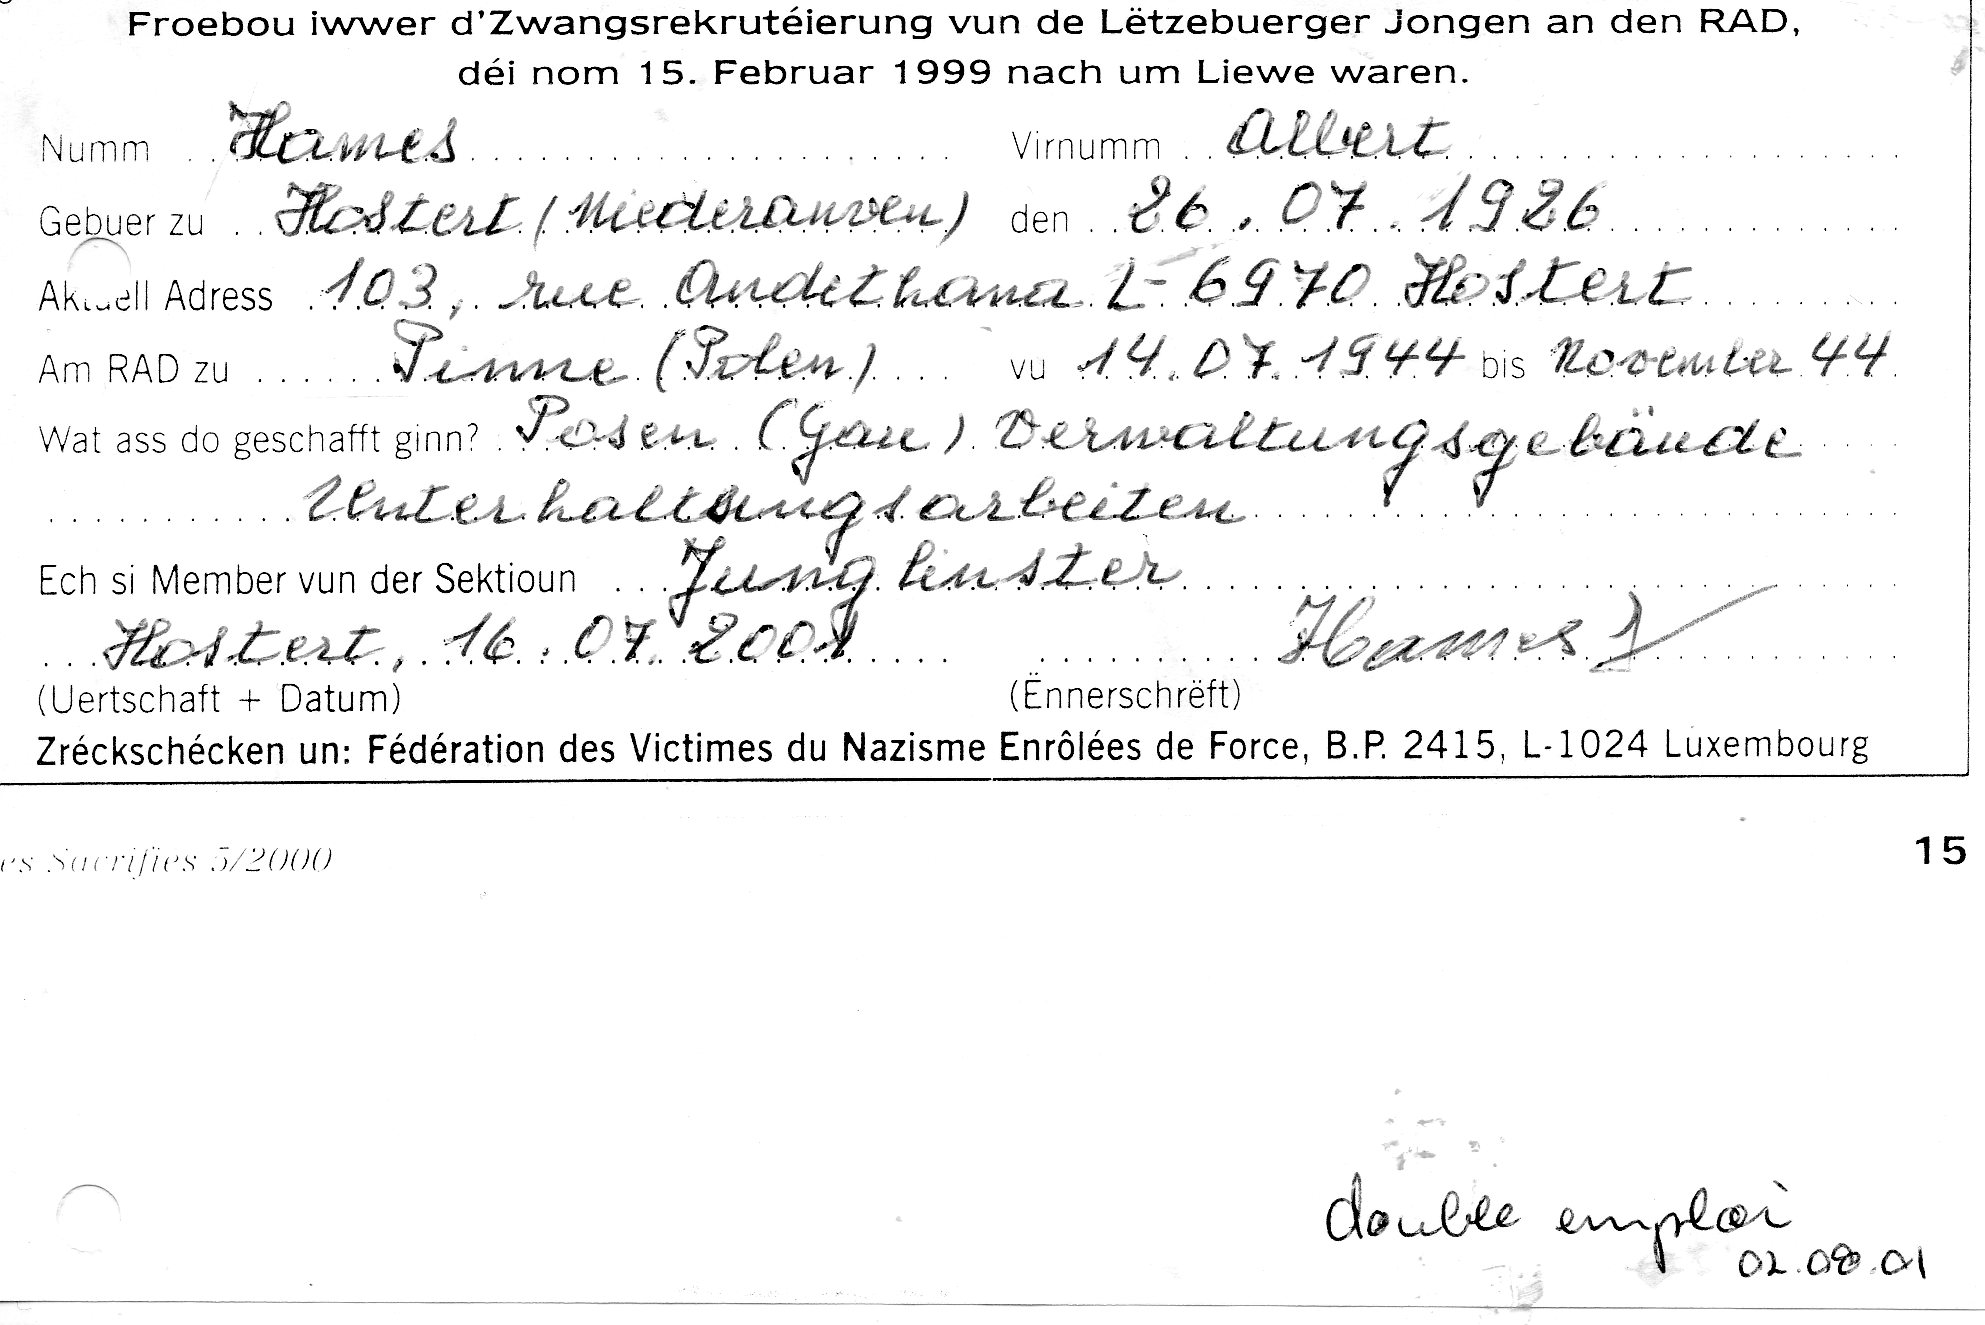 Froebou iwwer d'Zwangsrekrutéierung vun de Lëtzebuerger Jongen an den RAD,
déi nom 15. Februar 1999 nach um Liewe waren.
Numm Hames Virnumm Albert
Gebuer zu Hostert (Niederanven) den 26.07.1926
Aktuell Adress 103, rue Andethana L-6970 Hostert
Am RAD zu Pinne (Polen) vu 14.07.1944 bis November 44
Wat ass do geschafft ginn? Posen (Gau) Verwaltungsgebäude
Unterhaltungsarbeiten
Ech si Member vun der Sektioun Junglinster
Hostert, 16.07.2001 Hames
(Uertschaft + Datum) (Ënnerschrëft)
Zréckschécken un: Fédération des Victimes du Nazisme Enrôlées de Force, B.P. 2415, L-1024 Luxembourg
es Sacrifies 5/2000 15
double emploi
02.08.01